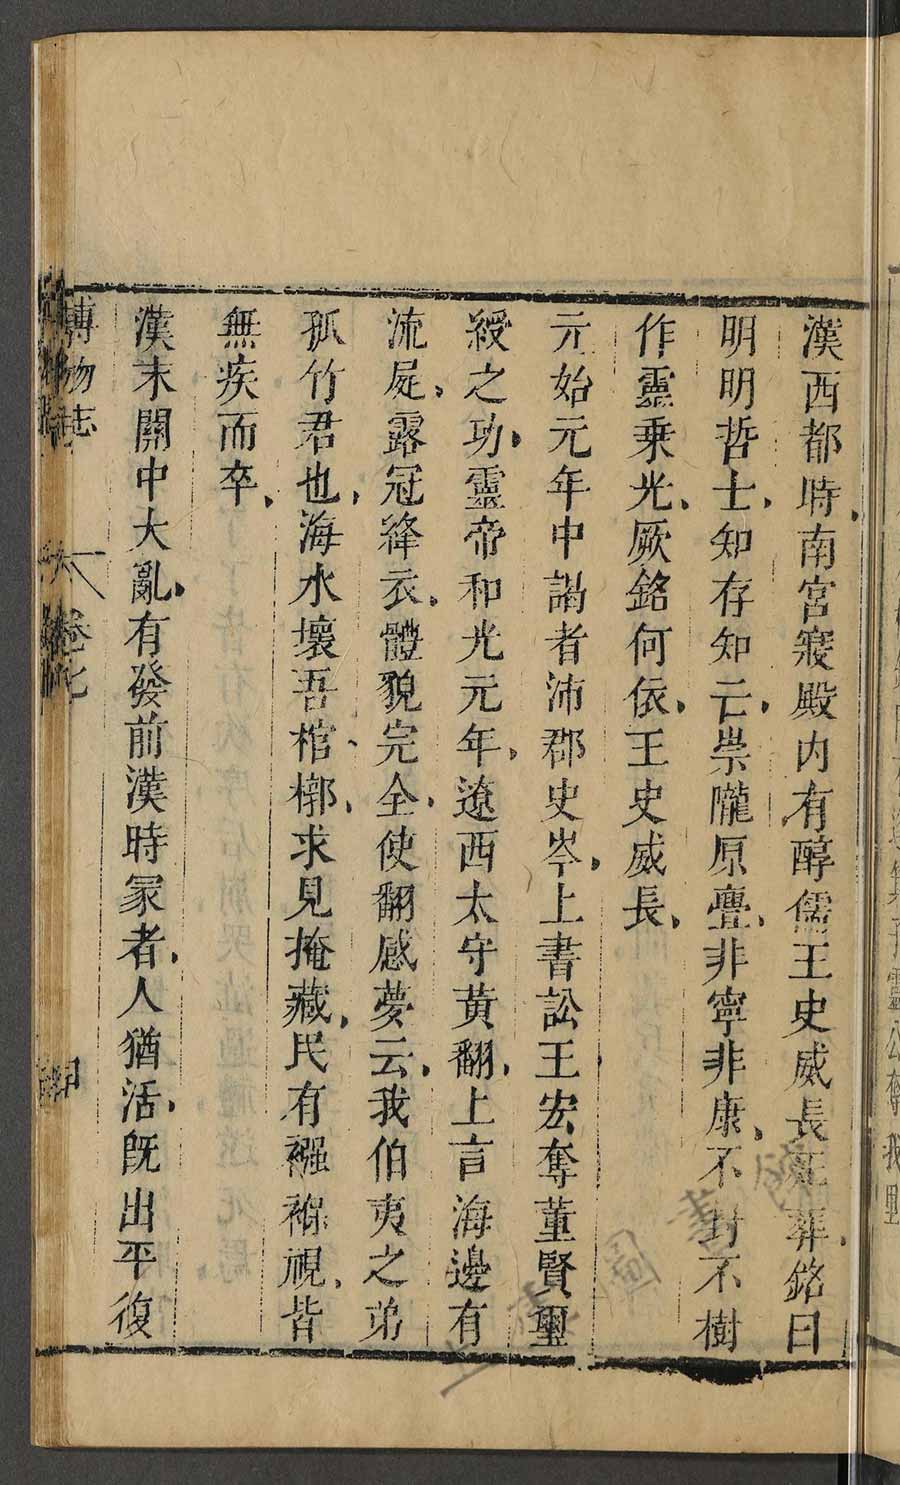 漢西都時南宮寢殿内有醇儒王史威長死葬銘曰
明明哲士知存知亡崇隴原亹非寧非康不封不樹
作靈乗光厥銘何依王史威長
元始元年中謁者沛郡史岑上書訟王宏奪董賢璽
綬之功靈帝和光元年遼西太守黄翻上言海邊有
流屍露冠絳衣體貌完全使翻感夢云我伯夷之弟
孤竹君也海水壞吾棺槨求見掩藏民有襁褓視皆
無疾而卒
漢末關中大亂有發前漢時冢者人猶活旣出平復
博物志
卷七